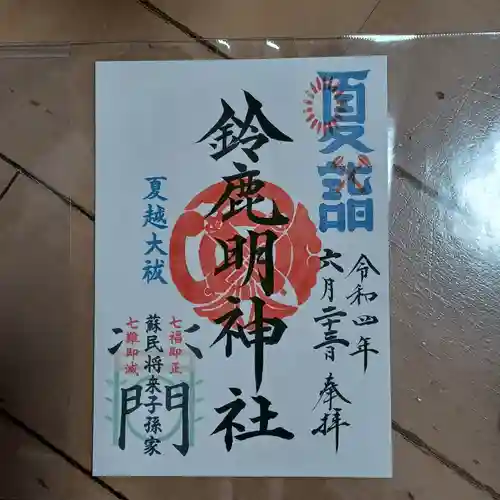 夏詣
令和四年
六月二十三日 奉拝
鈴鹿明神社
夏越大祓
七福即正
蘇民将来子孫家
七難即滅
門